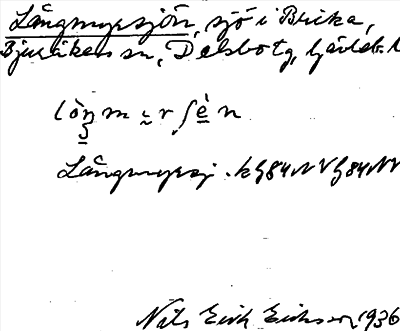 Långmyrsjön, sjö i Bricka,
Bjuråkers sn, Delsbo tg, Gävleb. l
Långmyrsj. kG84NVG84NV
Nils Erik Eriksson 1936